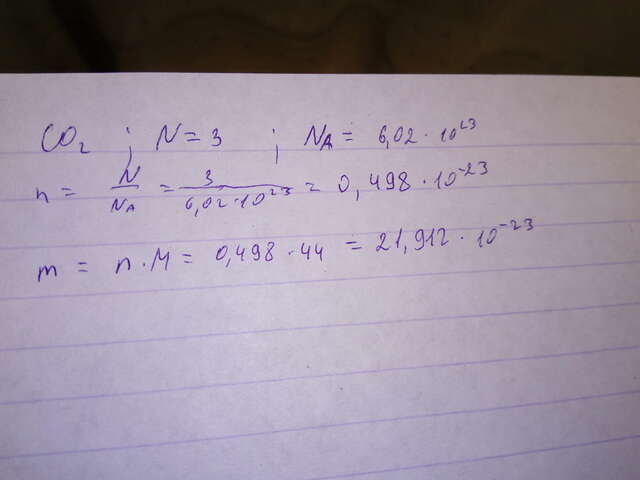 CO₂ ; N = 3 ; NA = 6,02 · 10²³
n = N/NA = 3/6,02·10²³ = 0,498 · 10⁻²³
m = n·M = 0,498 · 44 = 21,912 · 10⁻²³